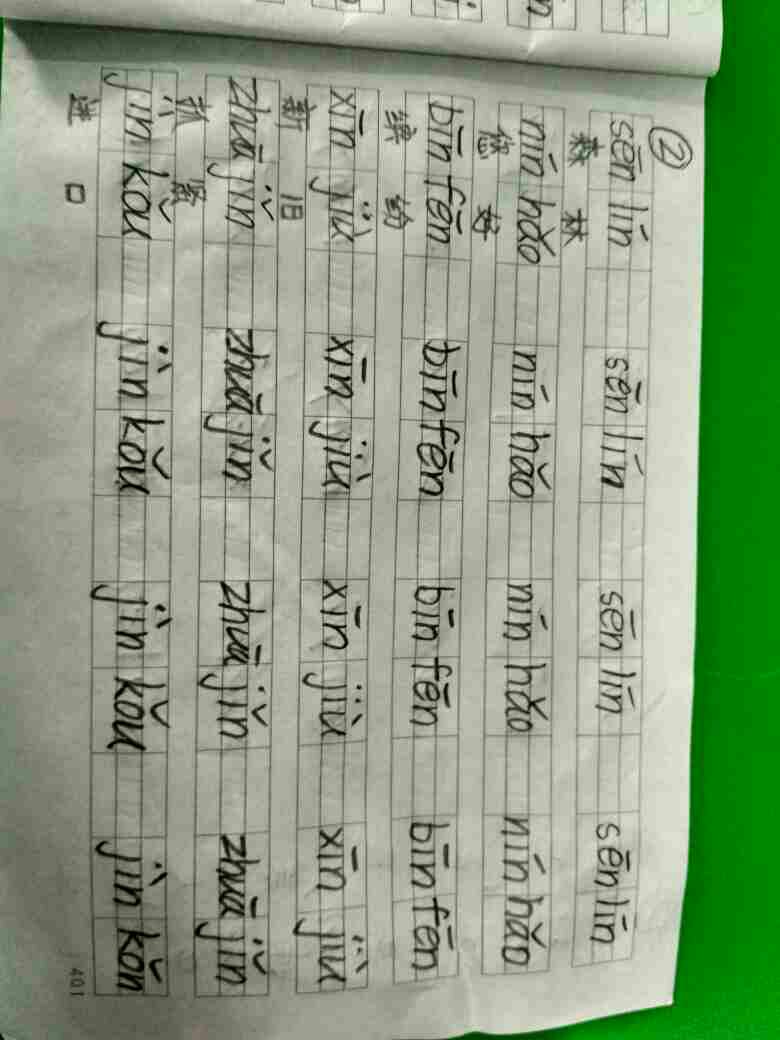 ②
sēn lín sēn lín sēn lín sēn lín
森 林
nín hǎo nín hǎo nín hǎo nín hǎo
您 好
bīn fēn bīn fēn bīn fēn bīn fēn
缤 纷
xīn jiù xīn jiù xīn jiù xīn jiù
新 旧
zhuā jǐn zhuā jǐn zhuā jǐn zhuā jǐn
抓 紧
jìn kǒu jìn kǒu jìn kǒu jìn kǒn
进 口
401